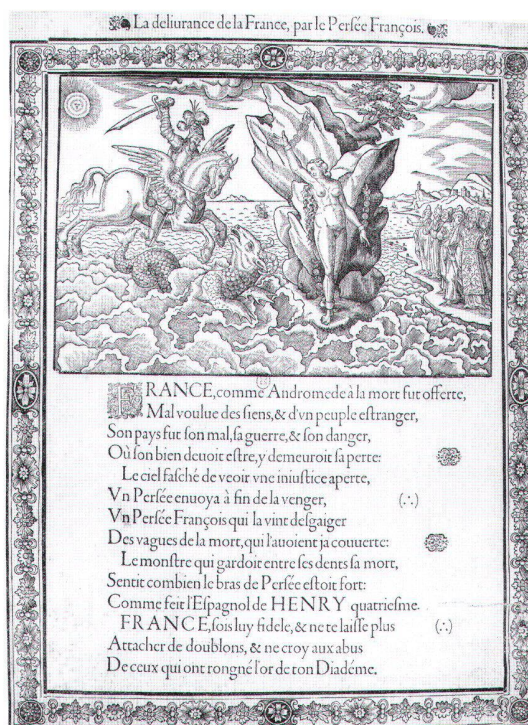 La deliurance de la France, par le Persée François.
FRANCE, comme Andromede à la mort fut offerte,
Mal voulue des siens, & d'vn peuple estranger,
Son pays fut son mal, sa guerre, & son danger,
Où son bien deuoit estre, y demeuroit sa perte:
Le ciel fasché de veoir vne iniustice aperte,
Vn Persée enuoya à fin de la venger, (∴)
Vn Persée François qui la vint desgaiger
Des vagues de la mort, qui l'auoient ja couuerte:
Le monstre qui gardoit entre ses dents sa mort,
Sentit combien le bras de Persée estoit fort:
Comme feit l'Espagnol de HENRY quatriesme.
FRANCE, sois luy fidele, & ne te laisse plus (∴)
Attacher de doublons, & ne croy aux abus
De ceux qui ont rongné l'or de ton Diadéme.